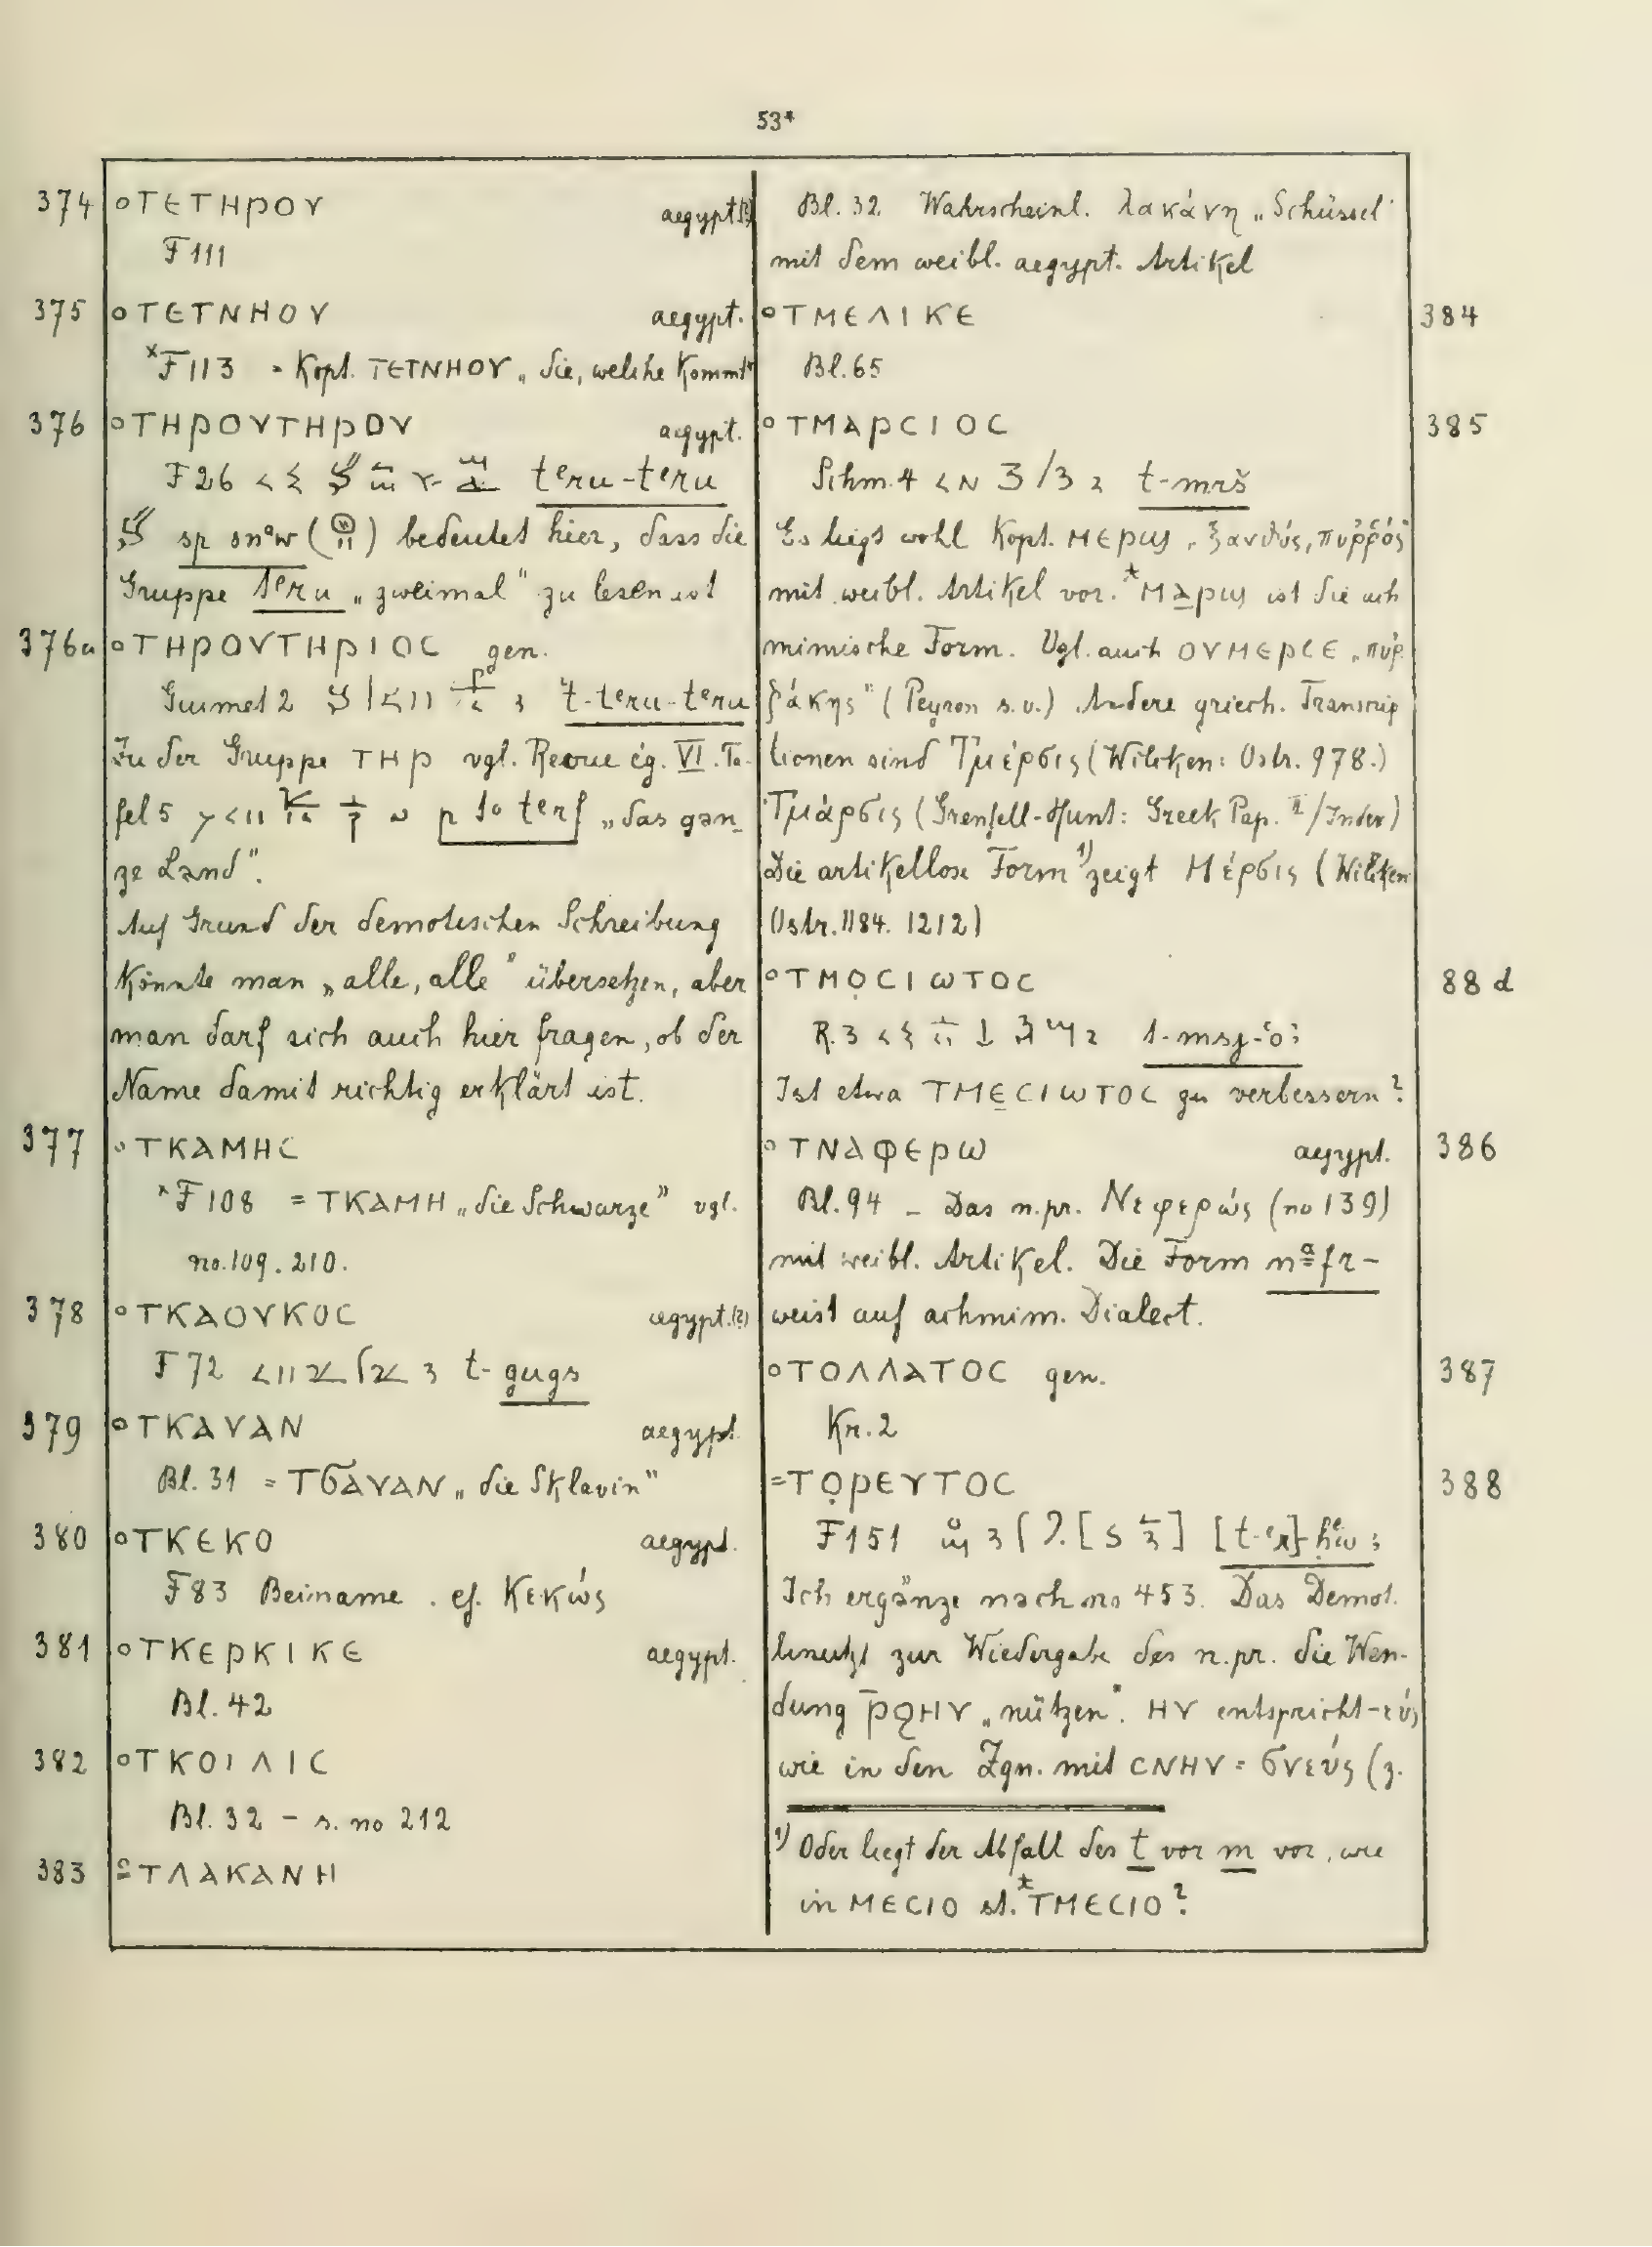 53*
374 ○ΤΕΤΗΡΟΥ aegypt(?)
F 111
375 ○ΤΕΤΝΗΟΥ aegypt.
*F 113 = Kopt. ΤΕΤΝΗΟΥ „die, welche kommt"
376 ○ΤΗΡΟΥΤΗΡΟΥ aegypt.
F 26 tᵉru-tᵉru
sp snᵃw ( ) bedeutet hier, dass die
Gruppe tᵉru „zweimal" zu lesen ist
376a ○ΤΗΡΟΥΤΗΡΙΟC gen.
Guimet 2 t-tᵉru-tᵉru
Zu der Gruppe ΤΗΡ vgl. Revue ég. VI. Ta-
fel 5 p to tᵉrf „das gan-
ze Land".
Auf Grund der demotischen Schreibung
könnte man „alle, alle" übersetzen, aber
man darf sich auch hier fragen, ob der
Name damit richtig erklärt ist.
377 ○ΤΚΑΜΗC
*F 108 = ΤΚΑΜΗ „die Schwarze" vgl.
no. 109. 210.
378 ○ΤΚΑΟΥΚΟC aegypt.(?)
F 72 t-gugs
379 ○ΤΚΑΥΑΝ aegypt.
Bl. 31 = ΤϬΑΥΑΝ „die Sklavin"
380 ○ΤΚΕΚΟ aegypt.
F 83 Beiname. cf. Κεκώς
381 ○ΤΚΕΡΚΙΚΕ aegypt.
Bl. 42
382 ○ΤΚΟΙΛΙC
Bl. 32 – s. no 212
383 ΤΛΑΚΑΝΗ
Bl. 32. Wahrscheinl. λακάνη „Schüssel"
mit dem weibl. aegypt. Artikel
○ΤΜΕΛΙΚΕ 384
Bl. 65
○ΤΜΑΡCΙΟC 385
Schm. 4 t-mrš
Es liegt wohl Kopt. ⲙⲉⲣϣ „ξανθός, πυῤῥός"
mit weibl. Artikel vor. *ⲙⲁⲣϣ ist die ach
mimische Form. Vgl. auch ΟΥΜΕΡCΕ „πυῤ
ῥάκης" (Peyron s.v.) Andere griech. Transcrip
tionen sind Τμέρσις (Wilcken: Ostr. 978.)
Τμάρσις (Grenfell-Hunt: Greek Pap. II/Index)
Die artikellose Form ¹) zeigt Μέρσις (Wilcken
Ostr. 1184. 1212)
○ΤΜỌCΙωΤΟC 88 d
R. 3
Ist etwa ΤΜΕCΙωΤΟC zu verbessern?
○ΤΝΑΦΕΡω aegypt. 386
Bl. 94 – Das n.pr. Νεφερώς (no 139)
mit weibl. Artikel. Die Form nᵃfr-
weist auf achmim. Dialect.
○ΤΟΛΛΑΤΟC gen. 387
Kr. 2
=ΤỌΡΕΥΤΟC 388
F 151
Ich ergänze nach no 453. Das Demot.
benutzt zur Wiedergabe des n.pr. die Wen-
dung ⲣ̄ϩⲏⲩ „nützen". ΗΥ entspricht -εύς
wie in den Zgn. mit CΝΗΥ = σνεύς (z.
¹) Oder liegt der Abfall des t vor m vor, wie
in ΜΕCΙΟ st. *ΤΜΕCΙΟ?